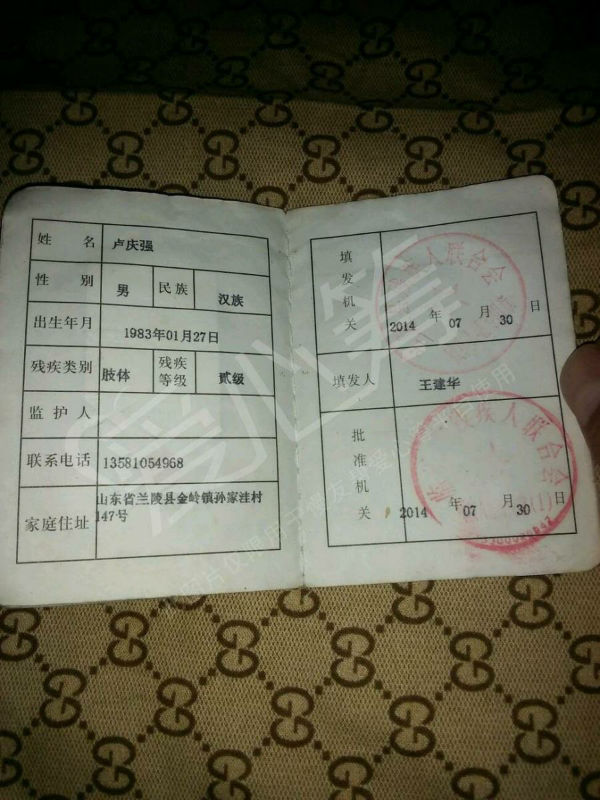 姓名 卢庆强
性别 男 民族 汉族
出生年月 1983年01月27日
残疾类别 肢体 残疾等级 贰级
监护人
联系电话 13581054968
家庭住址 山东省兰陵县金岭镇孙家洼村
147号
填发机关
残疾人联合会
2014 年 07 月 30 日
填发人 王建华
批准机关
残疾人联合会
2014 年 07 月 30 日
爱心筹